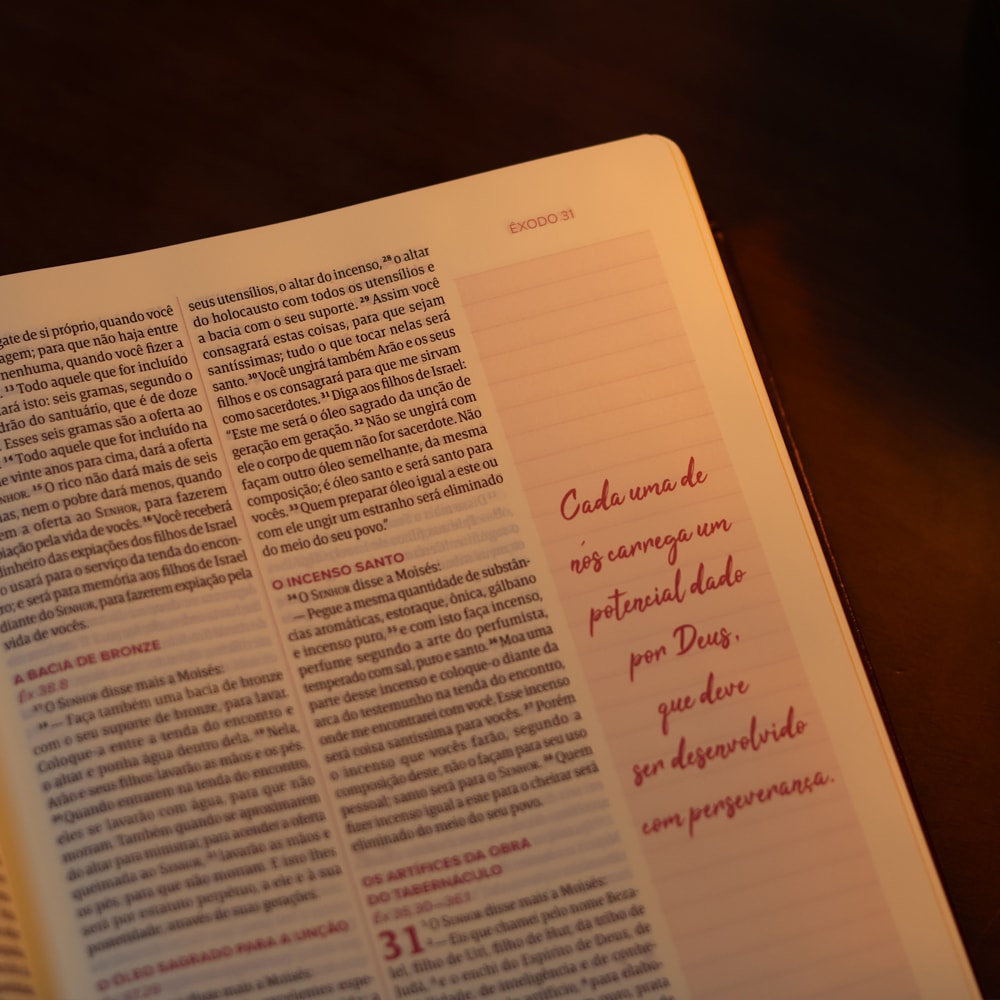 ÊXODO 31
gate de si próprio, quando você
agem; para que não haja entre
nenhuma, quando você fizer a
¹³ Todo aquele que for incluído
ará isto: seis gramas, segundo o
drão do santuário, que é de doze
Esses seis gramas são a oferta ao
¹⁴ Todo aquele que for incluído na
e vinte anos para cima, dará a oferta
NHOR. ¹⁵ O rico não dará mais de seis
as, nem o pobre dará menos, quando
em a oferta ao SENHOR, para fazerem
piação pela vida de vocês. ¹⁶ Você receberá
dinheiro das expiações dos filhos de Israel
o usará para o serviço da tenda do encon-
ro; e será para memória aos filhos de Israel
diante do SENHOR, para fazerem expiação pela
vida de vocês.
A BACIA DE BRONZE
Êx 38.8
¹⁷ O SENHOR disse mais a Moisés:
¹⁸ — Faça também uma bacia de bronze
com o seu suporte de bronze, para lavar.
Coloque-a entre a tenda do encontro e
o altar e ponha água dentro dela. ¹⁹ Nela,
Arão e seus filhos lavarão as mãos e os pés.
²⁰ Quando entrarem na tenda do encontro,
eles se lavarão com água, para que não
morram. Também quando se aproximarem
do altar para ministrar, para acender a oferta
queimada ao SENHOR, ²¹ lavarão as mãos e
os pés, para que não morram. E isto lhes
será por estatuto perpétuo, a ele e à sua
posteridade, através de suas gerações.
O ÓLEO SAGRADO PARA A UNÇÃO
disse mais a Moisés:
seus utensílios, o altar do incenso, ²⁸ o altar
do holocausto com todos os utensílios e
a bacia com o seu suporte. ²⁹ Assim você
consagrará estas coisas, para que sejam
santíssimas; tudo o que tocar nelas será
santo. ³⁰ Você ungirá também Arão e os seus
filhos e os consagrará para que me sirvam
como sacerdotes. ³¹ Diga aos filhos de Israel:
"Este me será o óleo sagrado da unção de
geração em geração. ³² Não se ungirá com
ele o corpo de quem não for sacerdote. Não
façam outro óleo semelhante, da mesma
composição; é óleo santo e será santo para
vocês. ³³ Quem preparar óleo igual a este ou
com ele ungir um estranho será eliminado
do meio do seu povo."
O INCENSO SANTO
³⁴ O SENHOR disse a Moisés:
— Pegue a mesma quantidade de substân-
cias aromáticas, estoraque, ônica, gálbano
e incenso puro, ³⁵ e com isto faça incenso,
perfume segundo a arte do perfumista,
temperado com sal, puro e santo. ³⁶ Moa uma
parte desse incenso e coloque-o diante da
arca do testemunho na tenda do encontro,
onde me encontrarei com você. Esse incenso
será coisa santíssima para vocês. ³⁷ Porém
o incenso que vocês farão, segundo a
composição deste, não o façam para seu uso
pessoal; santo será para o SENHOR. ³⁸ Quem
fizer incenso igual a este para o cheirar será
eliminado do meio do seu povo.
OS ARTÍFICES DA OBRA
DO TABERNÁCULO
Êx 35.30—36.1
31 ¹ O SENHOR disse mais a Moisés:
² — Eis que chamei pelo nome Beza-
lel, filho de Uri, filho de Hur, da tribo de
Judá, ³ e o enchi do Espírito de Deus, de
de inteligência e de conhe-
artifício, ⁴ para elabo-
prata
Cada uma de
nós carrega um
potencial dado
por Deus,
que deve
ser desenvolvido
com perseverança.